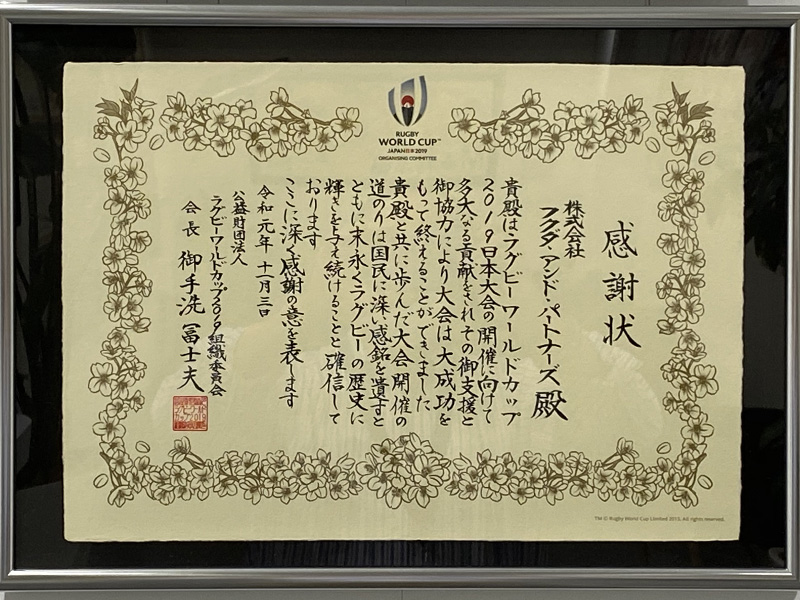 RUGBY
WORLD CUP™
JAPAN日本2019
ORGANISING COMMITTEE
感謝状
株式会社
フクダ・アンド・パートナーズ殿
貴殿はラグビーワールドカップ
2019日本大会の開催に向けて
多大なる貢献をされその御支援と
御協力により大会は大成功を
もって終えることができました
貴殿と共に歩んだ大会開催の
道のりは国民に深い感銘を遺すと
ともに末永くラグビーの歴史に
輝きを与え続けることと確信して
おります
ここに深く感謝の意を表します
令和元年十一月三日
公益財団法人
ラグビーワールドカップ2019組織委員会
会長 御手洗冨士夫
TM © Rugby World Cup Limited 2015. All rights reserved.